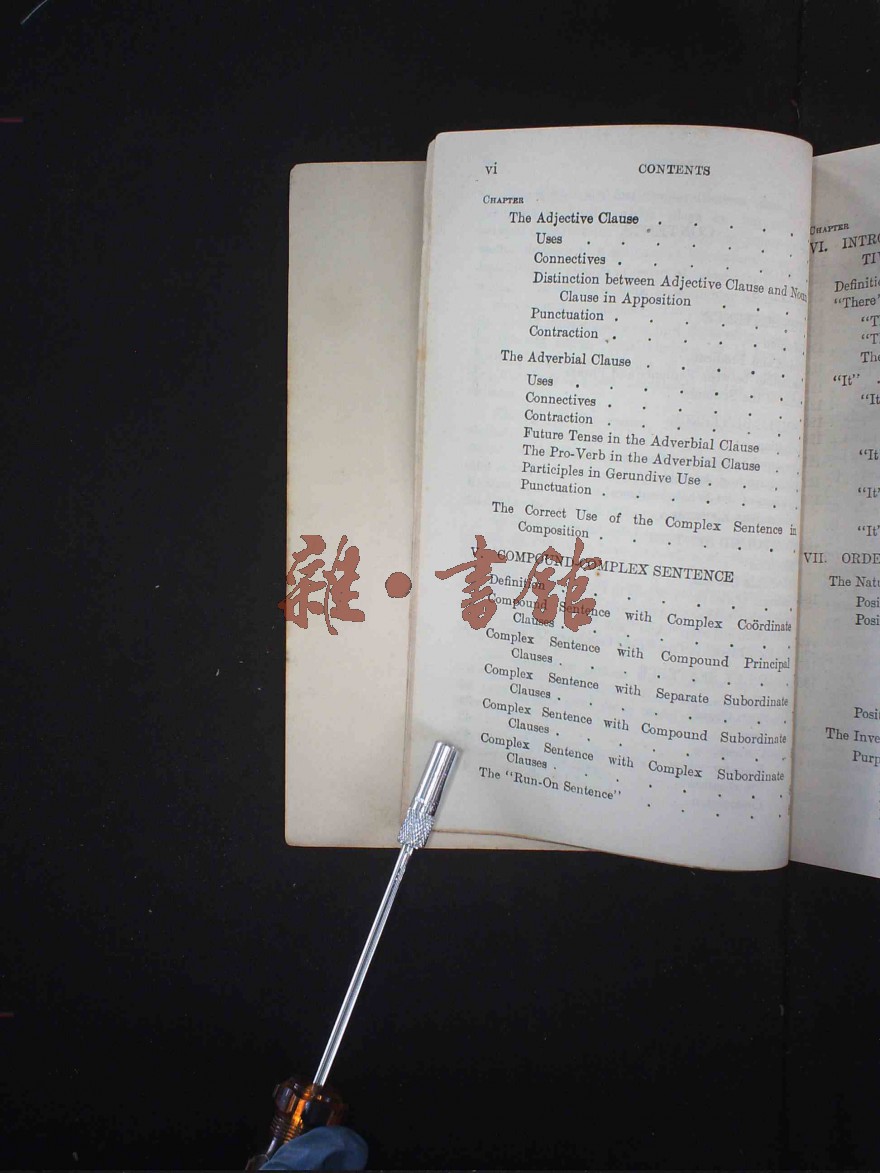 vi CONTENTS
CHAPTER
The Adjective Clause . . . . .
Uses . . . . . . .
Connectives . . . . . .
Distinction between Adjective Clause and Noun
Clause in Apposition . . .
Punctuation . . . . . .
Contraction . . . . . .
The Adverbial Clause . . . . .
Uses . . . . . . .
Connectives . . . . . .
Contraction . . . . . .
Future Tense in the Adverbial Clause .
The Pro-Verb in the Adverbial Clause .
Participles in Gerundive Use . . .
Punctuation . . . . . .
The Correct Use of the Complex Sentence in
Composition . . . . . .
V. COMPOUND-COMPLEX SENTENCE
Definition . . . . . . .
Compound Sentence with Complex Coördinate
Clauses . . . . . . .
Complex Sentence with Compound Principal
Clauses . . . . . . .
Complex Sentence with Separate Subordinate
Clauses . . . . . . .
Complex Sentence with Compound Subordinate
Clauses . . . . . . .
Complex Sentence with Complex Subordinate
Clauses . . . . . . .
The "Run-On Sentence" . . . .
CHAPTER
VI. INTRO
TIV
Definitio
"There"
"T
"T
The
"It" .
"It
"It
"It'
"It'
VII. ORDE
The Natu
Posi
Posi
Posit
The Inve
Purp
雜·書館